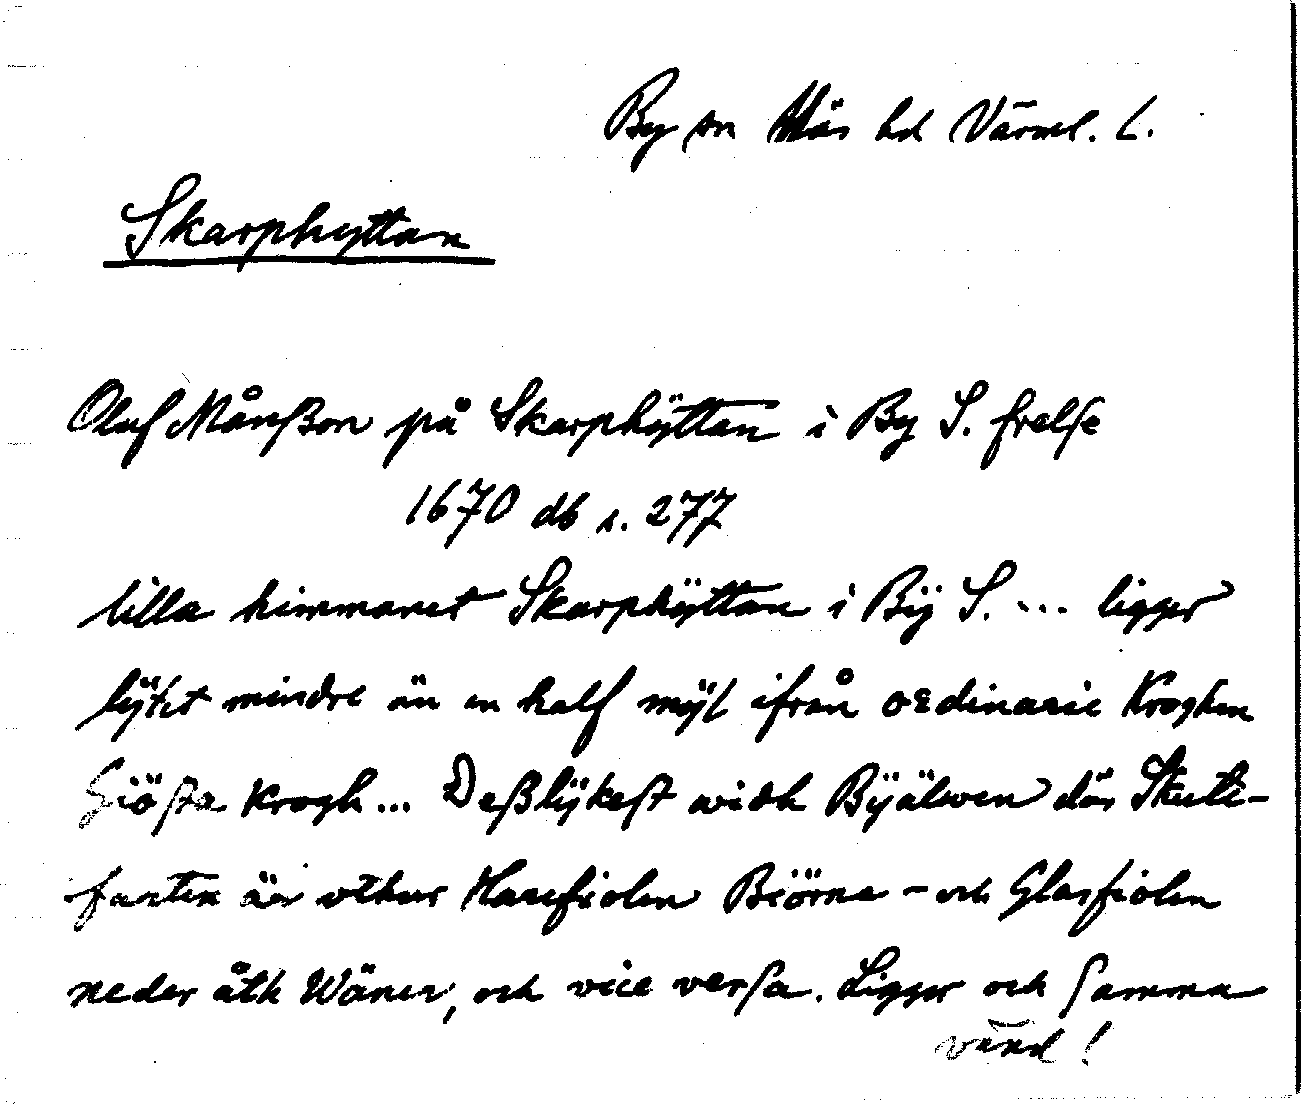 By sn Näs hd Värml. L.
Skarphyttan
Oluf Månßon på Skarphÿttan i By S. frelse
1670 db s. 277
lilla himmanet Skarphÿttan i Bÿ S. ... ligger
lÿtet mindre än en half mÿl ifrån ordinarie Kroghen
Giösta Krogh... Deßlÿkest widh Bÿälwen där Skute-
farten är uthur Harefiolen Biörne - och Glasfiolen
neder åth Wänern, och vice versa. Ligger och samma
vänd!